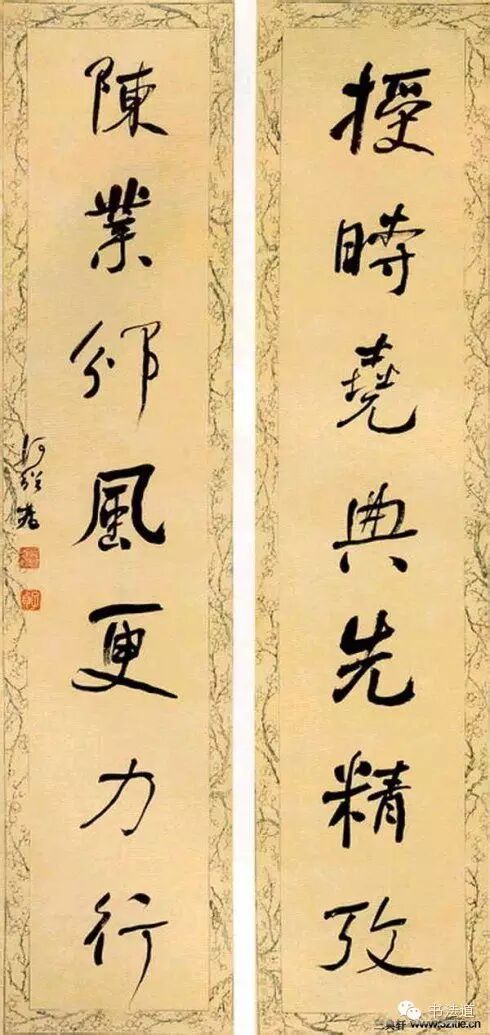 授時堯典先精攷
陳業邠風更力行
何紹基
书法道